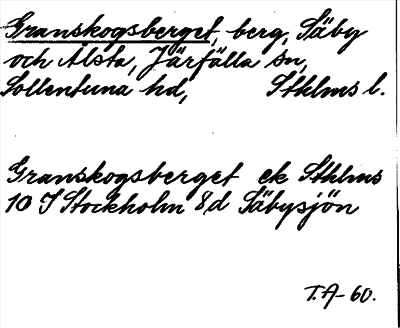 Granskogsberget, berg, Säby
och Ålsta, Järfälla sn,
Sollentuna hd, Sthlms l.
Granskogsberget ek Sthlms
10 I Stockholm 8d Säbysjön
T.A-60.